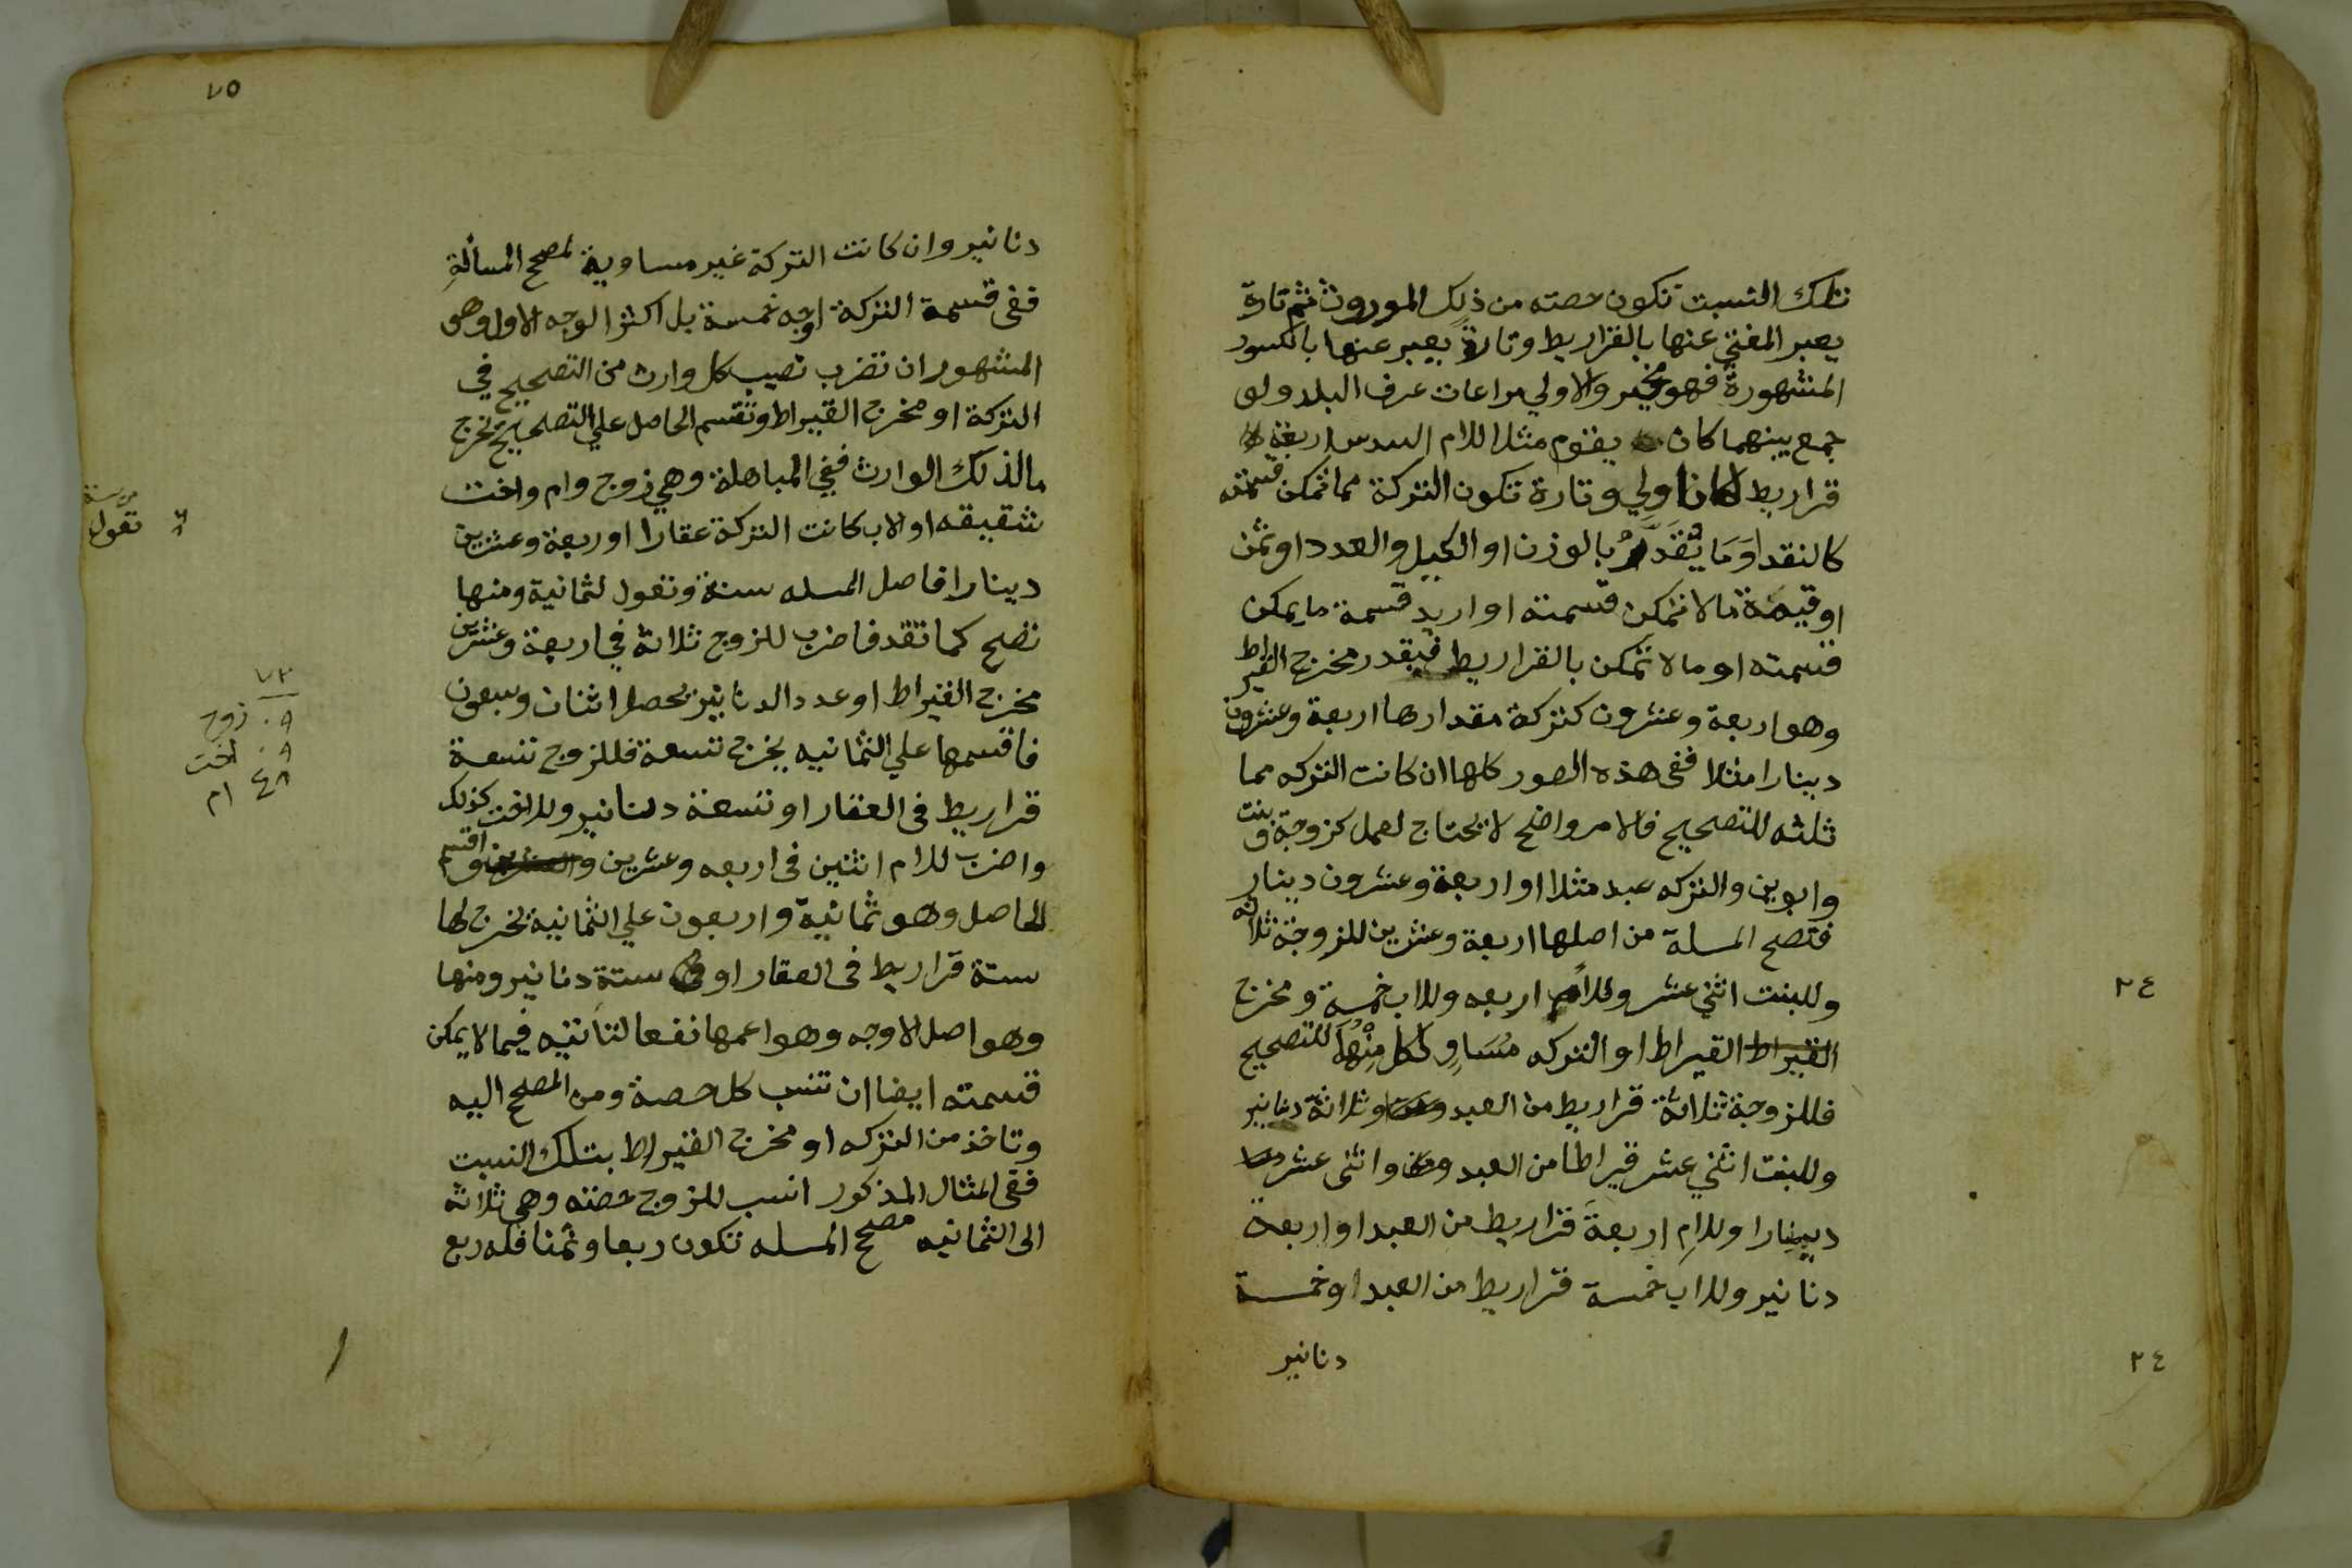 تلك النسبت تكون حصته من ذلك الموروث ثم تارة
يعبر المفتي عنها بالقراريط وتارة يعبر عنها بالكسور
المشهورة فهو مخير والاولي مراعات عرف البلد ولو
جمع بينهما كان يقوم مثلا للام السدس اربعة
قراريط لكان اولي وتارة تكون التركة مما تمكن قسمته
كالنقد اوَمَا يُقَدَّرُ بالوزن او الكيل والعدد او ثمن
او قيمة مالا تمكن قسمته او اريد قسمة ما يمكن
قسمته او مالا تمكن بالقراريط فيقدر مخرج القيراط
وهو اربعة وعشرون كتركة مقدارها اربعة وعشرون
دينارا مثلا ففي هذه الصور كلها ان كانت التركه مما
ثلثه للتصحيح فالامر واضح لا يحتاج لعمل كزوجة وبنت
وابوين والتركه عبد مثلا او اربعة وعشرون دينار
فتصح المسلة من اصلها اربعة وعشرين للزوجة ثلاثه
وللبنت اثني عشر وللام اربعه وللاب خمسة ومخرج
القيراط القيراط او التركه مُسَاوٍ لكل مِنْهُمَا للتصحيح
فللزوجة ثلاثة قراريط من العبد وثلاثة دنانير
وللبنت اثني عشر قيراطا من العبد واثنى عشر
دينارا وللامِ اربعةَ قراريط من العبد او اربعة
دنانير وللاب خمسة قراريط من العبد او خمسة
دنانير
٢٤
٢٤
٧٥
دنانير وان كانت التركة غير مساوية لمصح المسألةِ
ففي قسمة التركة اوجه خمسة بل اكثر الوجه الاول وهو
المشهور ان تضرب نصيب كل وارث من التصحيح في
التركة او مخرج القيراط وتقسم الحاصل علي التصحيح يخرج
مالذلك الوارث ففي المباهلة وهي زوج وام واخت
شقيقه او لاب كانت التركة عقارا او ربعة وعشرين
دينارا فاصل المسله ستة وتعول لثمانية ومنها
تصح كما تقد فاضرب للزوج ثلاثة في اربعة وعشرين
مخرج القيراط او عدد الدنانير يحصل اثنان وسبعون
فاقسمها علي الثمانيه يخرج تسعة فللزوج تسعة
قراريط في العقار او تسعة دنانير وللاخت كذلك
واضرب للام اثنين في اربعه وعشرين واقسم
الحاصل وهو ثمانية واربعون علي الثمانية يخرج لها
ستة قراريط في العقار او ستة دنانير ومنها
وهو اصل الاوجه وهو اعمها نفعا لتأتيه فيما لا يمكن
قسمته ايضا ان تنسب كل حصة ومن المصح اليه
وتاخذ من التركه او مخرج القيراط بتلك النسبت
ففي المثال المذكور انسب للزوج حصته وهي ثلاثه
الى الثمانيه مصح المسله تكون ربعا وثمنا فله ربع
من ستة
تعول
٧٢
٩٠ زوج
٩٠ اخت
٤٨ ام